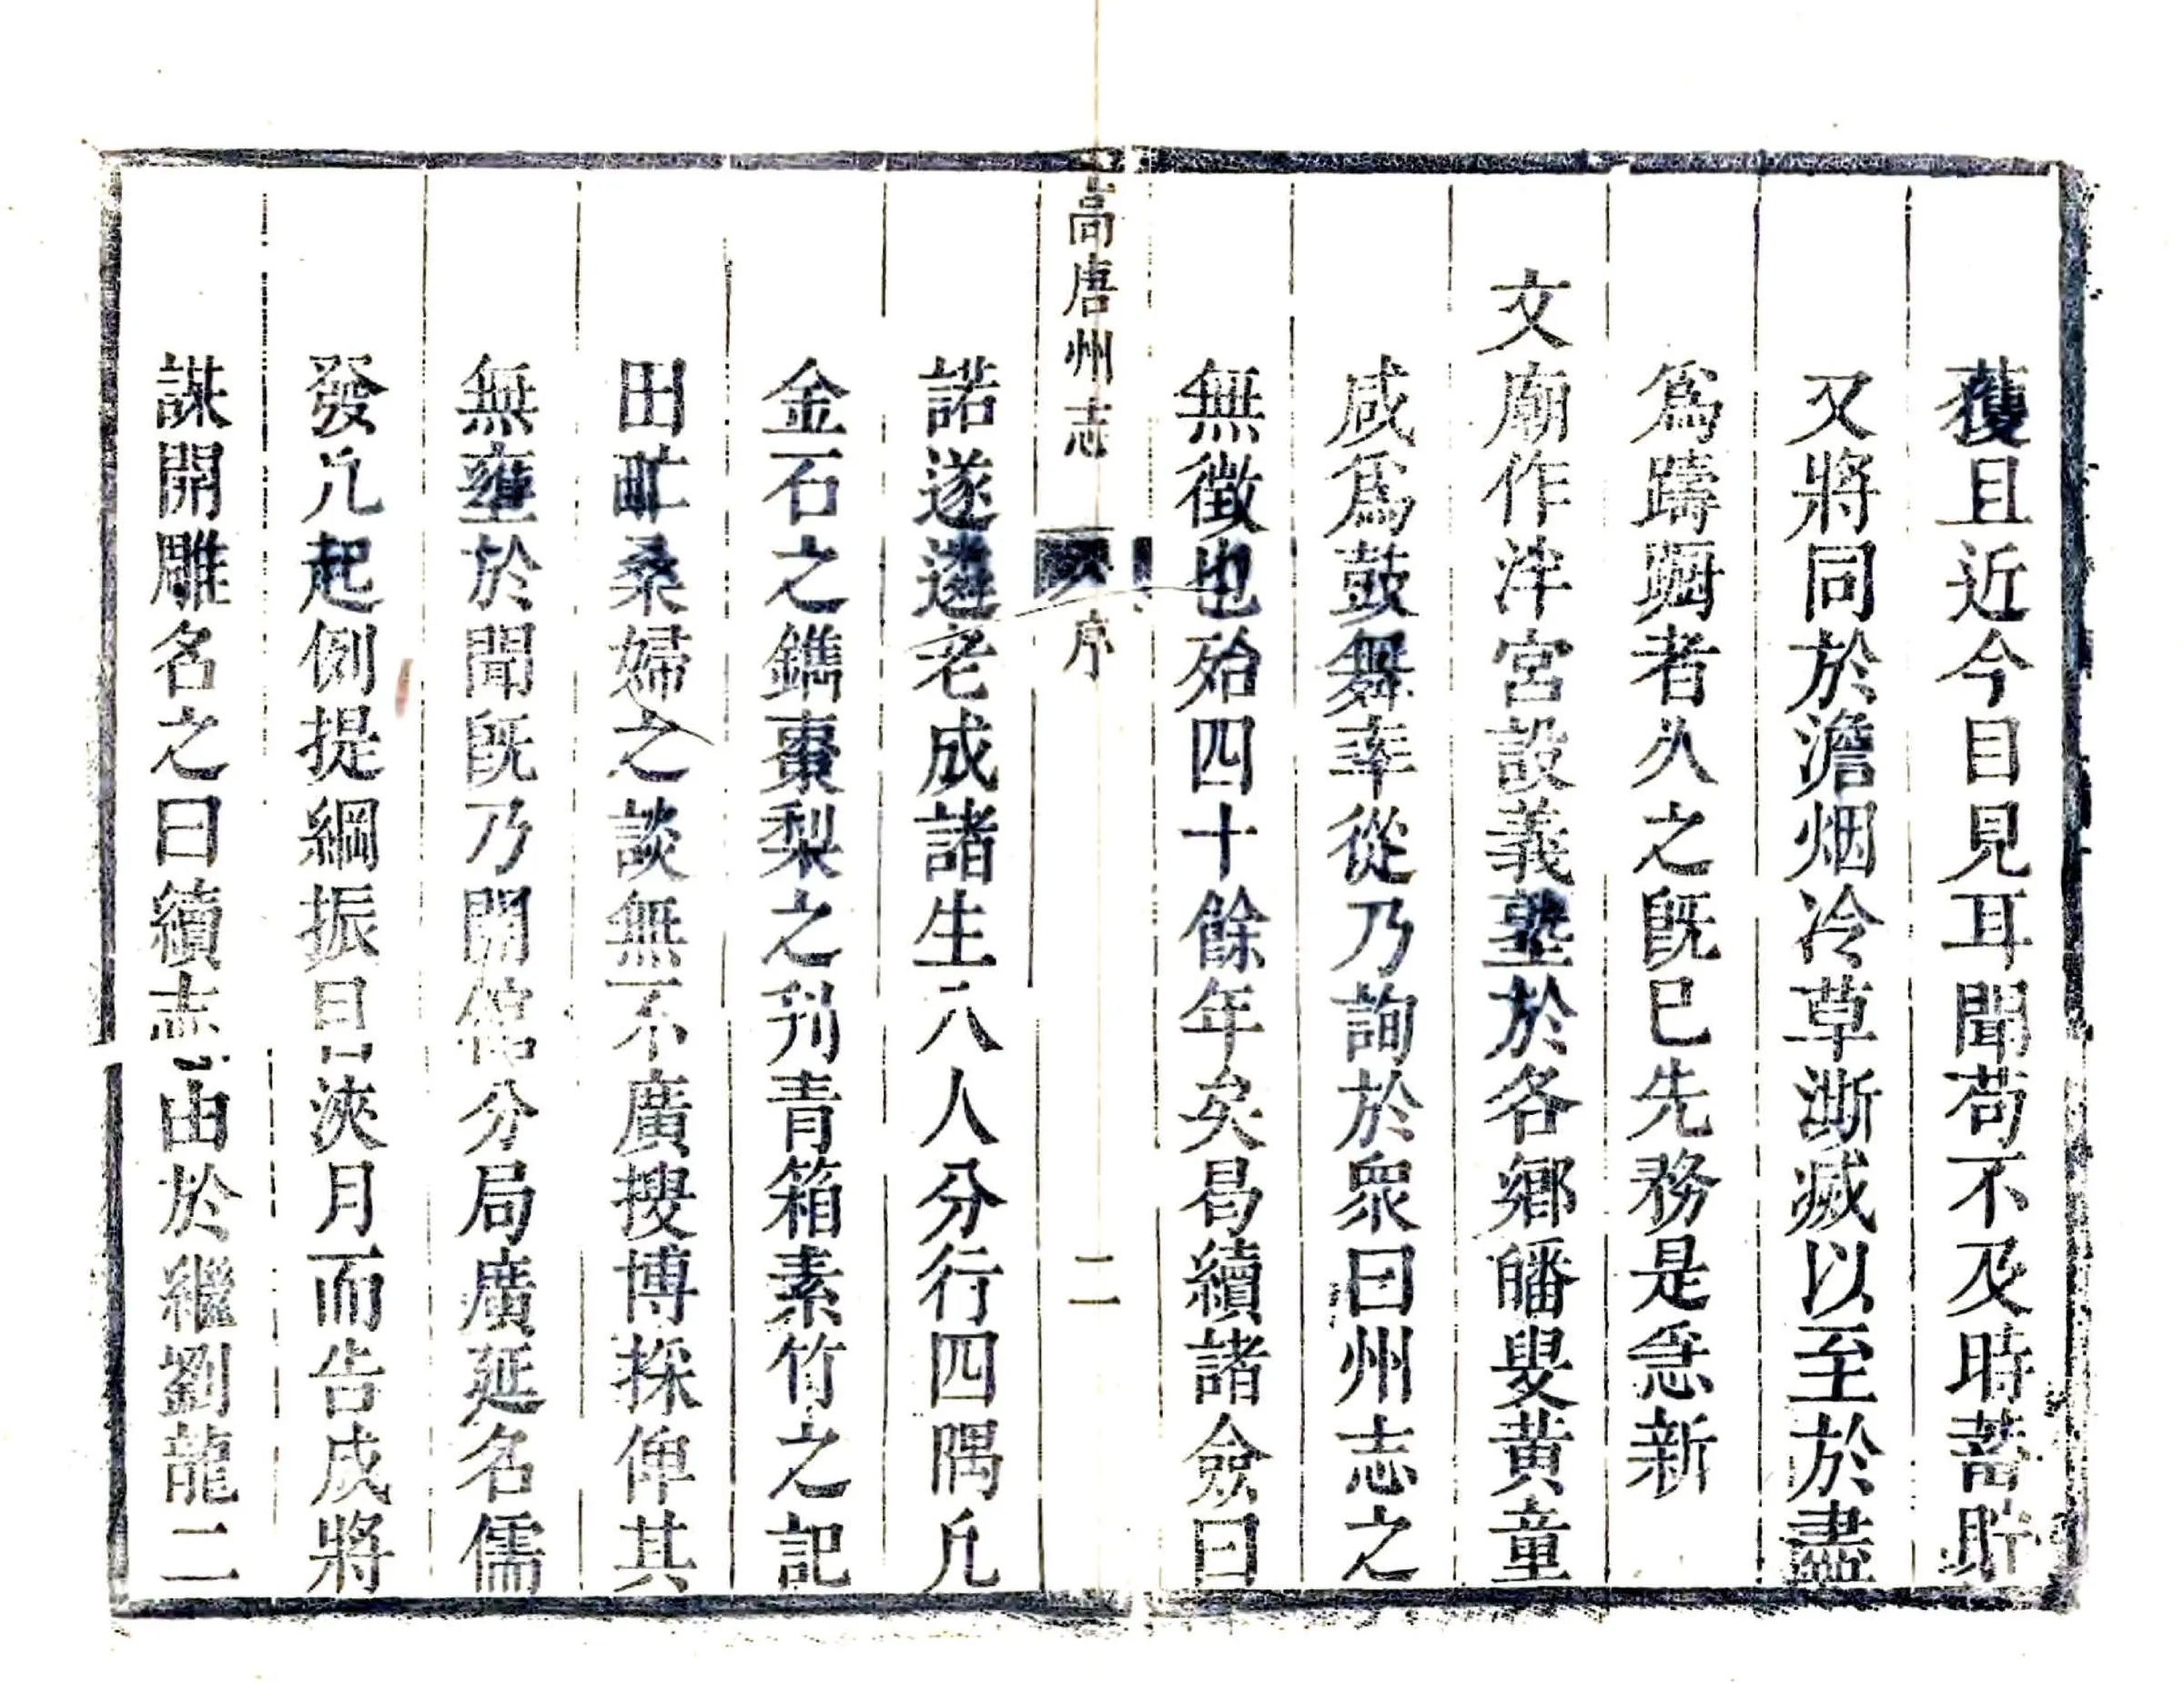 獲且近今目見耳聞苟不及時蓄貯
又將同於澹烟冷草澌滅以至於盡
爲躊躕者久之旣巳先務是急新
文廟作泮宮設義塾於各鄉皤叟黃童
咸爲鼓舞率從乃詢於衆曰州志之
無徵也殆四十餘年矣曷續諸僉曰
高唐州志
序
二
諾遂遴老成諸生八人分行四隅凡
金石之鐫棗梨之刋青箱素竹之記
田甿桑婦之談無不廣搜博採俾其
無壅於聞旣乃開舘分局廣延名儒
發凡起例提綱振目浹月而告成將
謀開雕名之曰續志由於繼劉龍二